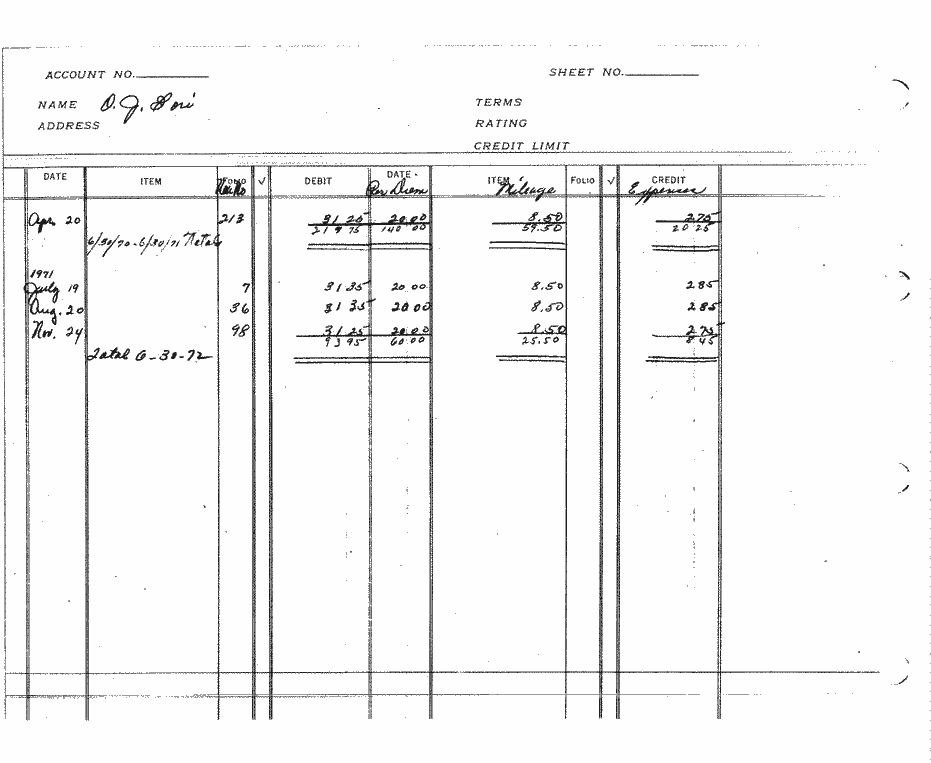 ACCOUNT NO. SHEET NO.
NAME O. J. TERMS
ADDRESS RATING
CREDIT LIMIT
DATE ITEM FOLIO √ DEBIT DATE ITEM FOLIO √ CREDIT
Per Diem Mileage Expenses
Apr. 20 213 31 25 20.00 8.50 2 75
6/30/70-6/30/71 Total 219 75 140 00 59.50 20 25
1971
July 19 7 31 35 20 00 8.50 2 85
Aug. 20 36 31 35 20 00 8.50 2 85
Nov. 24 98 31 25 20 00 8.50 2 75
93 95 60.00 25.50 8 45
Total 6-30-72